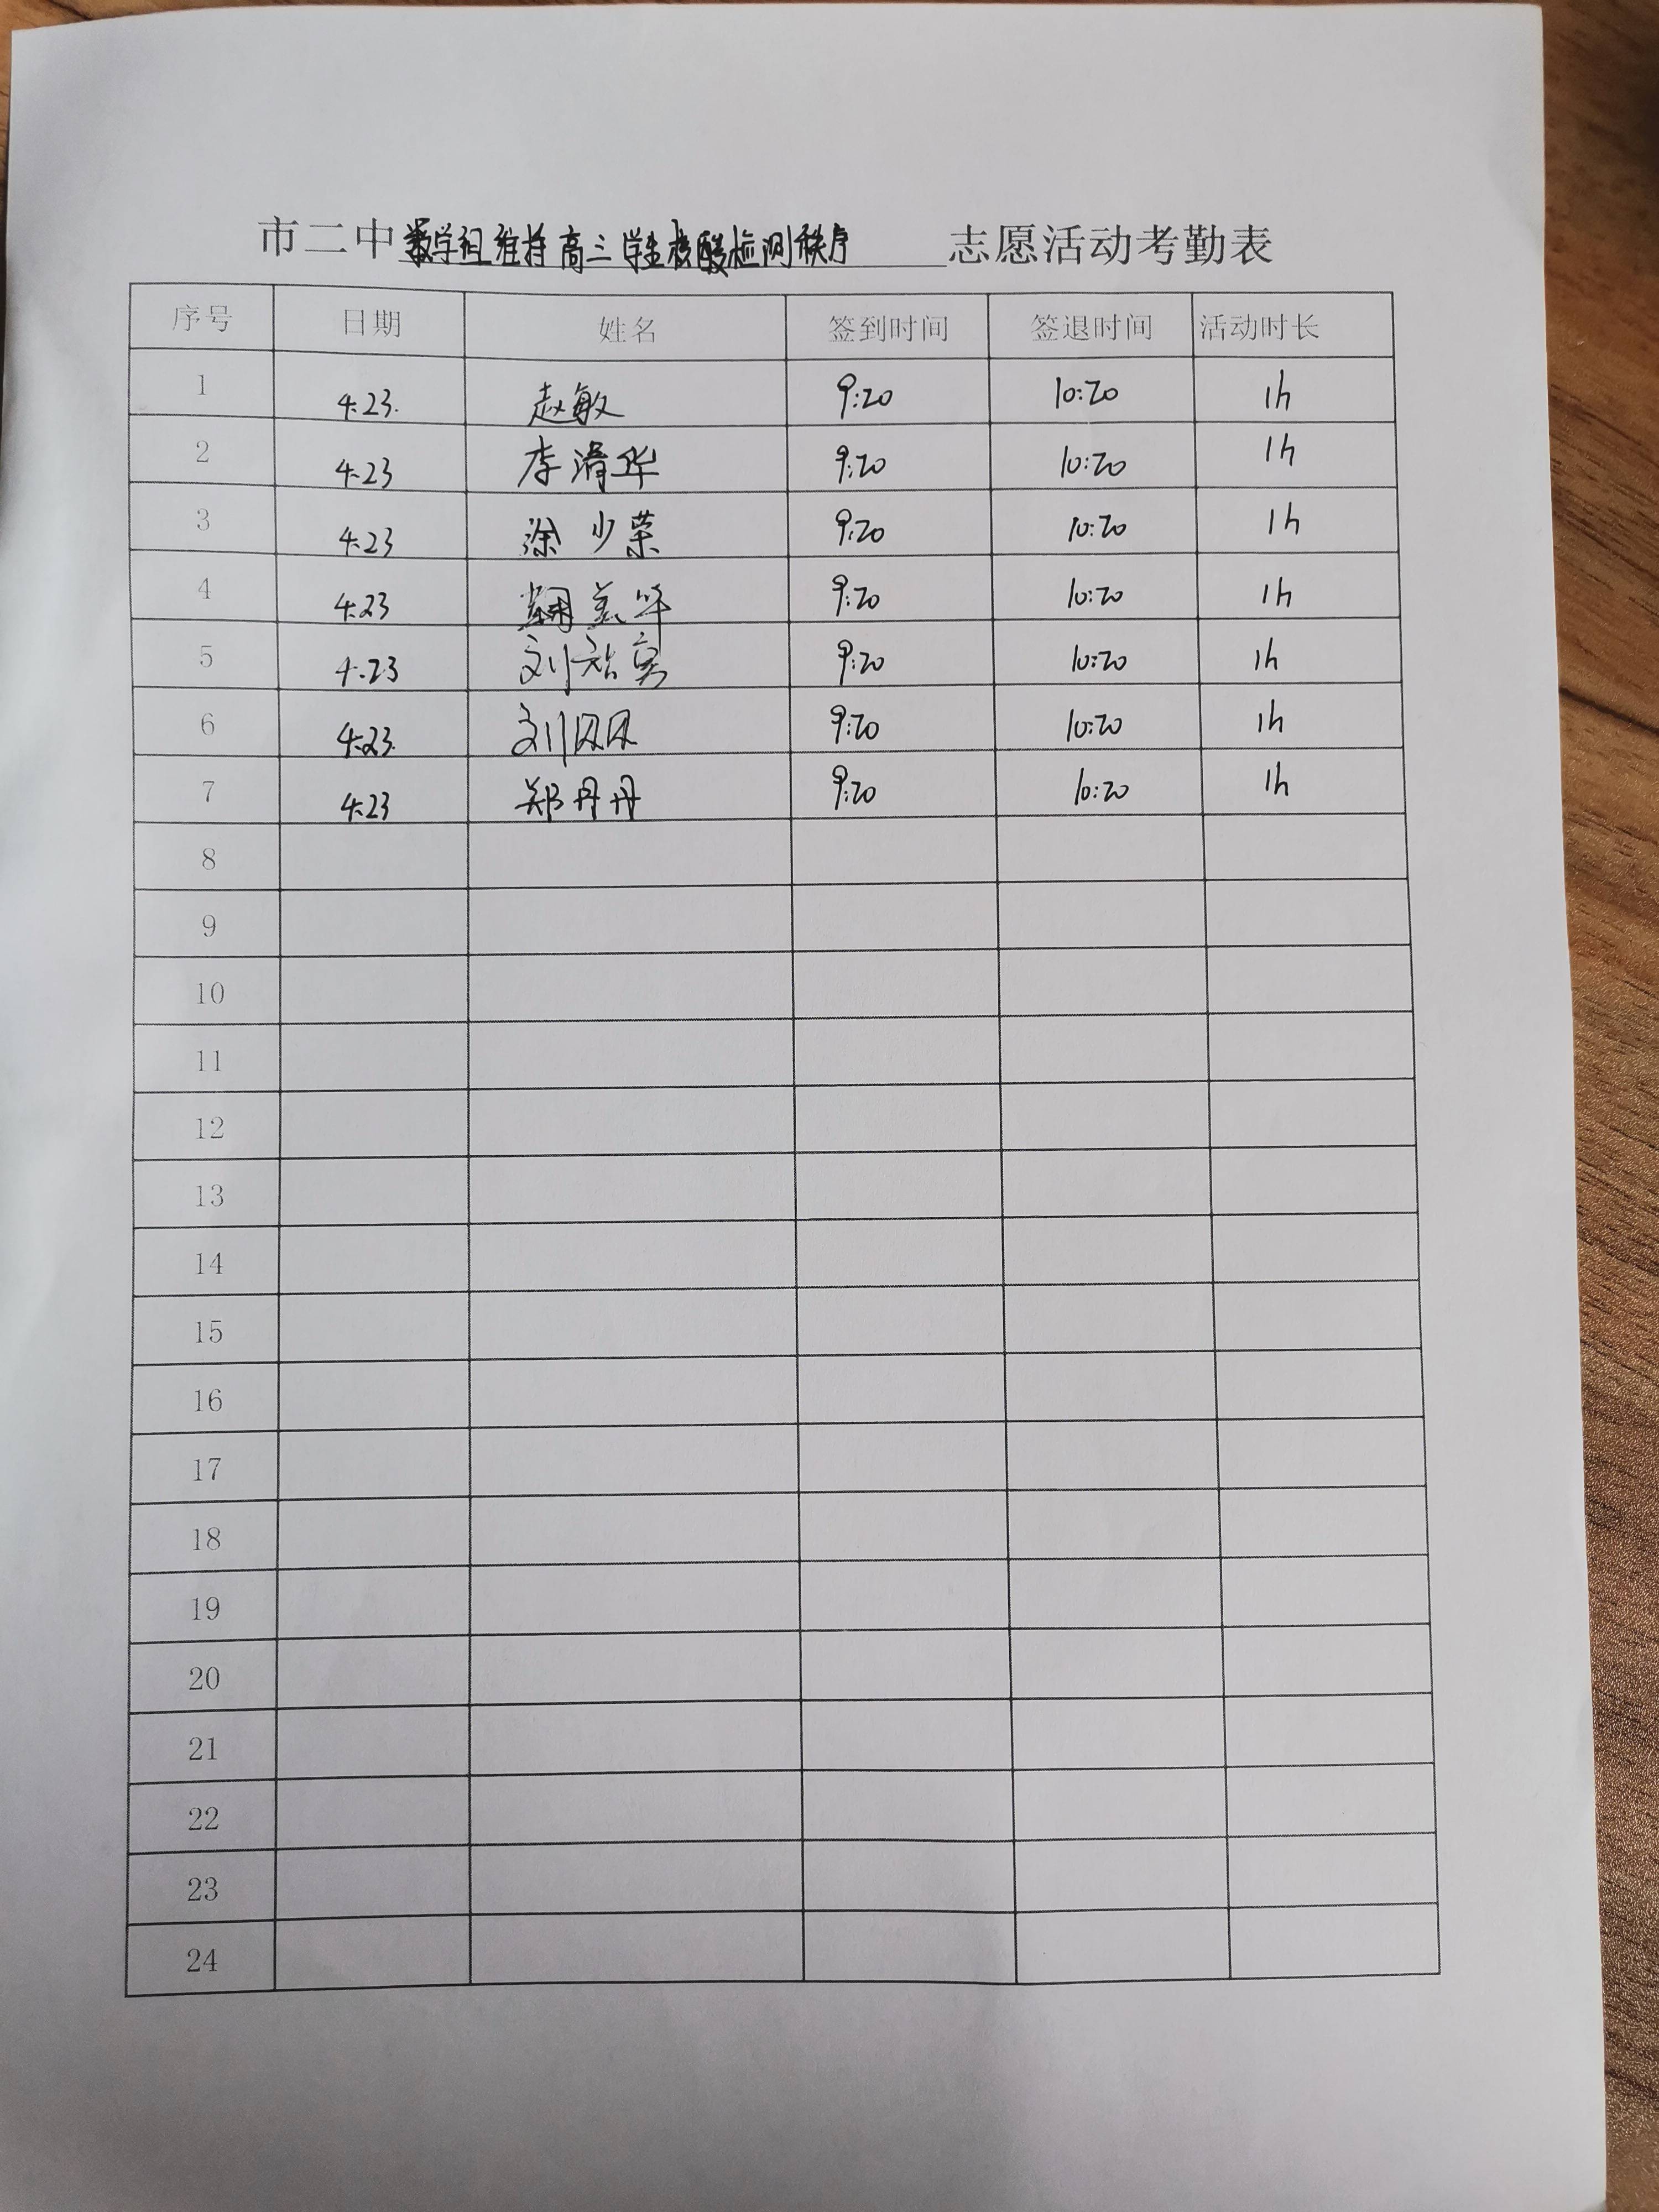 市二中数学组维持高三学生核酸检测秩序志愿活动考勤表
序号 日期 姓名 签到时间 签退时间 活动时长
1 4.23. 赵敏 9:20 10:20 1h
2 4.23 李清华 9:20 10:20 1h
3 4.23 涂少荣 9:20 10:20 1h
4 4.23 美华 9:20 10:20 1h
5 4.23 刘 9:20 10:20 1h
6 4.23. 刘贝贝 9:20 10:20 1h
7 4.23 郑丹丹 9:20 10:20 1h
8
9
10
11
12
13
14
15
16
17
18
19
20
21
22
23
24